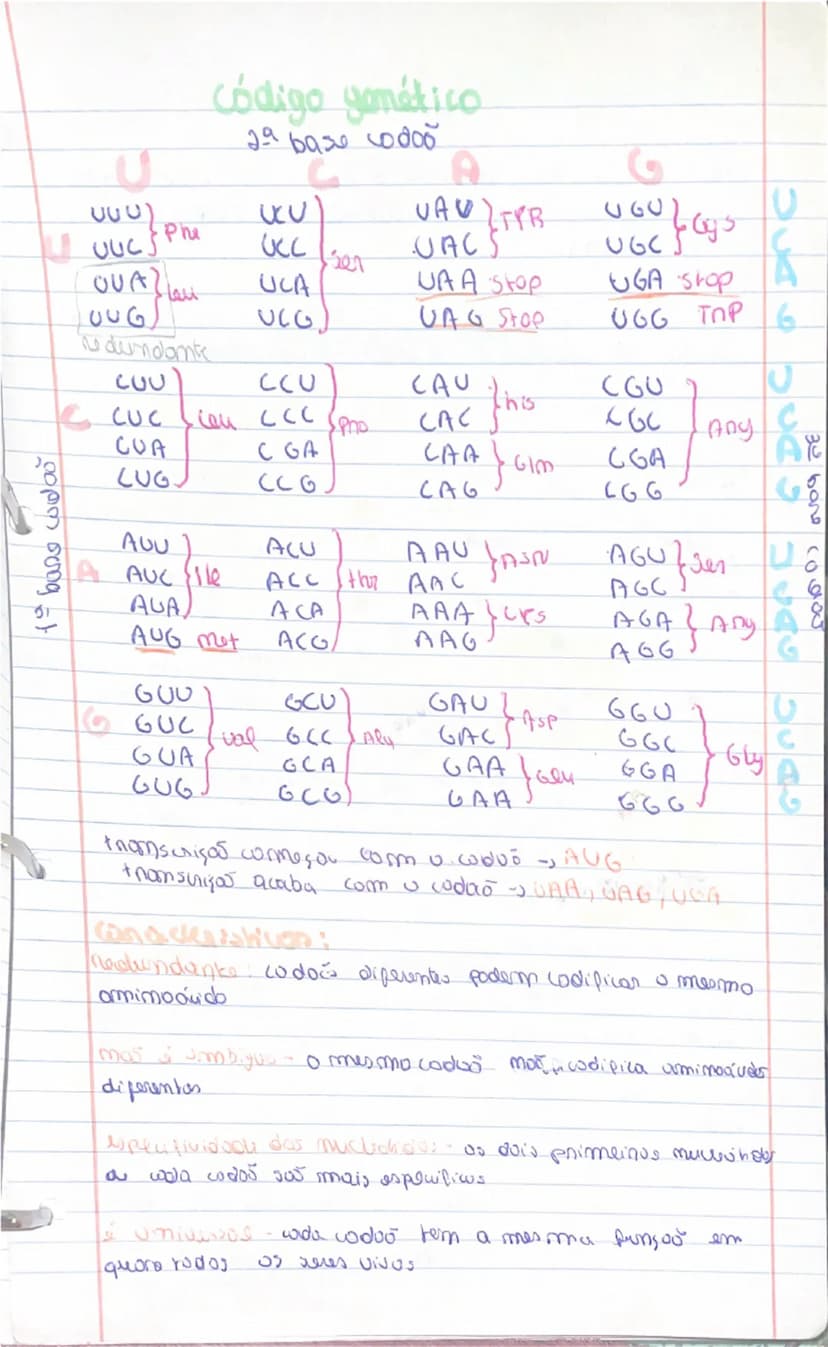 Código genético
2ª base codão
U C A G
UUU UCU UAU UGU U
U UUC Phe UCC Ser UAC TYR UGC Cys C
UUA Leu UCA UAA Stop UGA stop A
UUG UCG UAG Stop UGG TRP G
redundante
CUU CCU CAU CGU U
C CUC Leu CCC Pro CAC his CGC Arg C
CUA CGA CAA Gln CGA A
CUG CCG CAG CGG G
AUU ACU AAU AGU U
A AUC Ile ACC thr AAC ASN AGC Ser C
AUA ACA AAA LYS AGA Arg A
AUG met ACG AAG AGG G
GUU GCU GAU GGU U
G GUC Val GCC Ala GAC Asp GGC Gly C
GUA GCA GAA Glu GGA A
GUG GCG GAA GGG G
1ª base codão
3ª base codão
transcrição começou com o codão → AUG
transcrição acaba com o codão → UAA, UAG, UGA
Características:
Redundante: codões diferentes podem codificar o mesmo
aminoácido
não é ambíguo - o mesmo codão não codifica aminoácidos
diferentes
especificidade dos nucleótidos - os dois primeiros nucleótidos
de cada codão são mais específicos
é universal - cada codão tem a mesma função em
quase todos os seres vivos